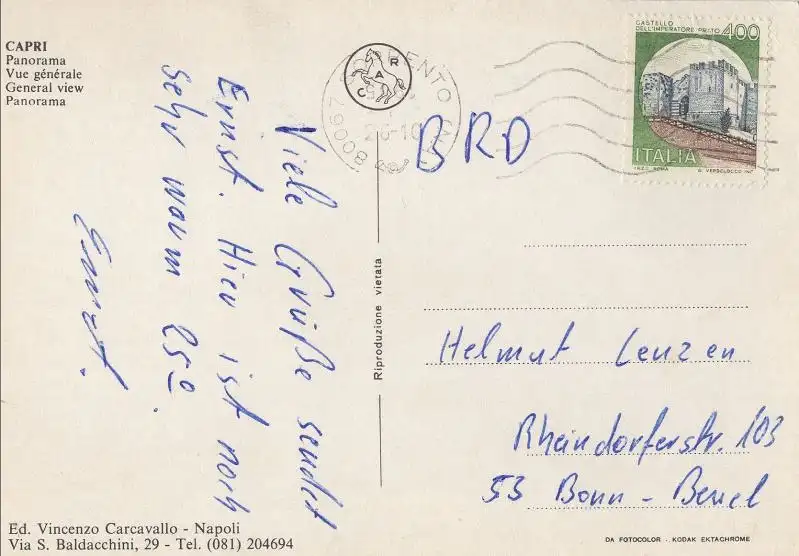 CAPRI
Panorama
Vue générale
General view
Panorama
Viele Grüße sendet
Ernst. Hier ist noch
sehr warm 25º.
Ernst.
Ed. Vincenzo Carcavallo - Napoli
Via S. Baldacchini, 29 - Tel. (081) 204694
Riproduzione vietata
R
A
C
80067 SORRENTO (NA)
26-10
CASTELLO
DELL'IMPERATORE PRATO 400
ITALIA
I.P.Z.S. ROMA
BRD
Helmut Lenzen
Rheindorferstr. 103
53 Bonn - Beuel
DA FOTOCOLOR - KODAK EKTACHROME